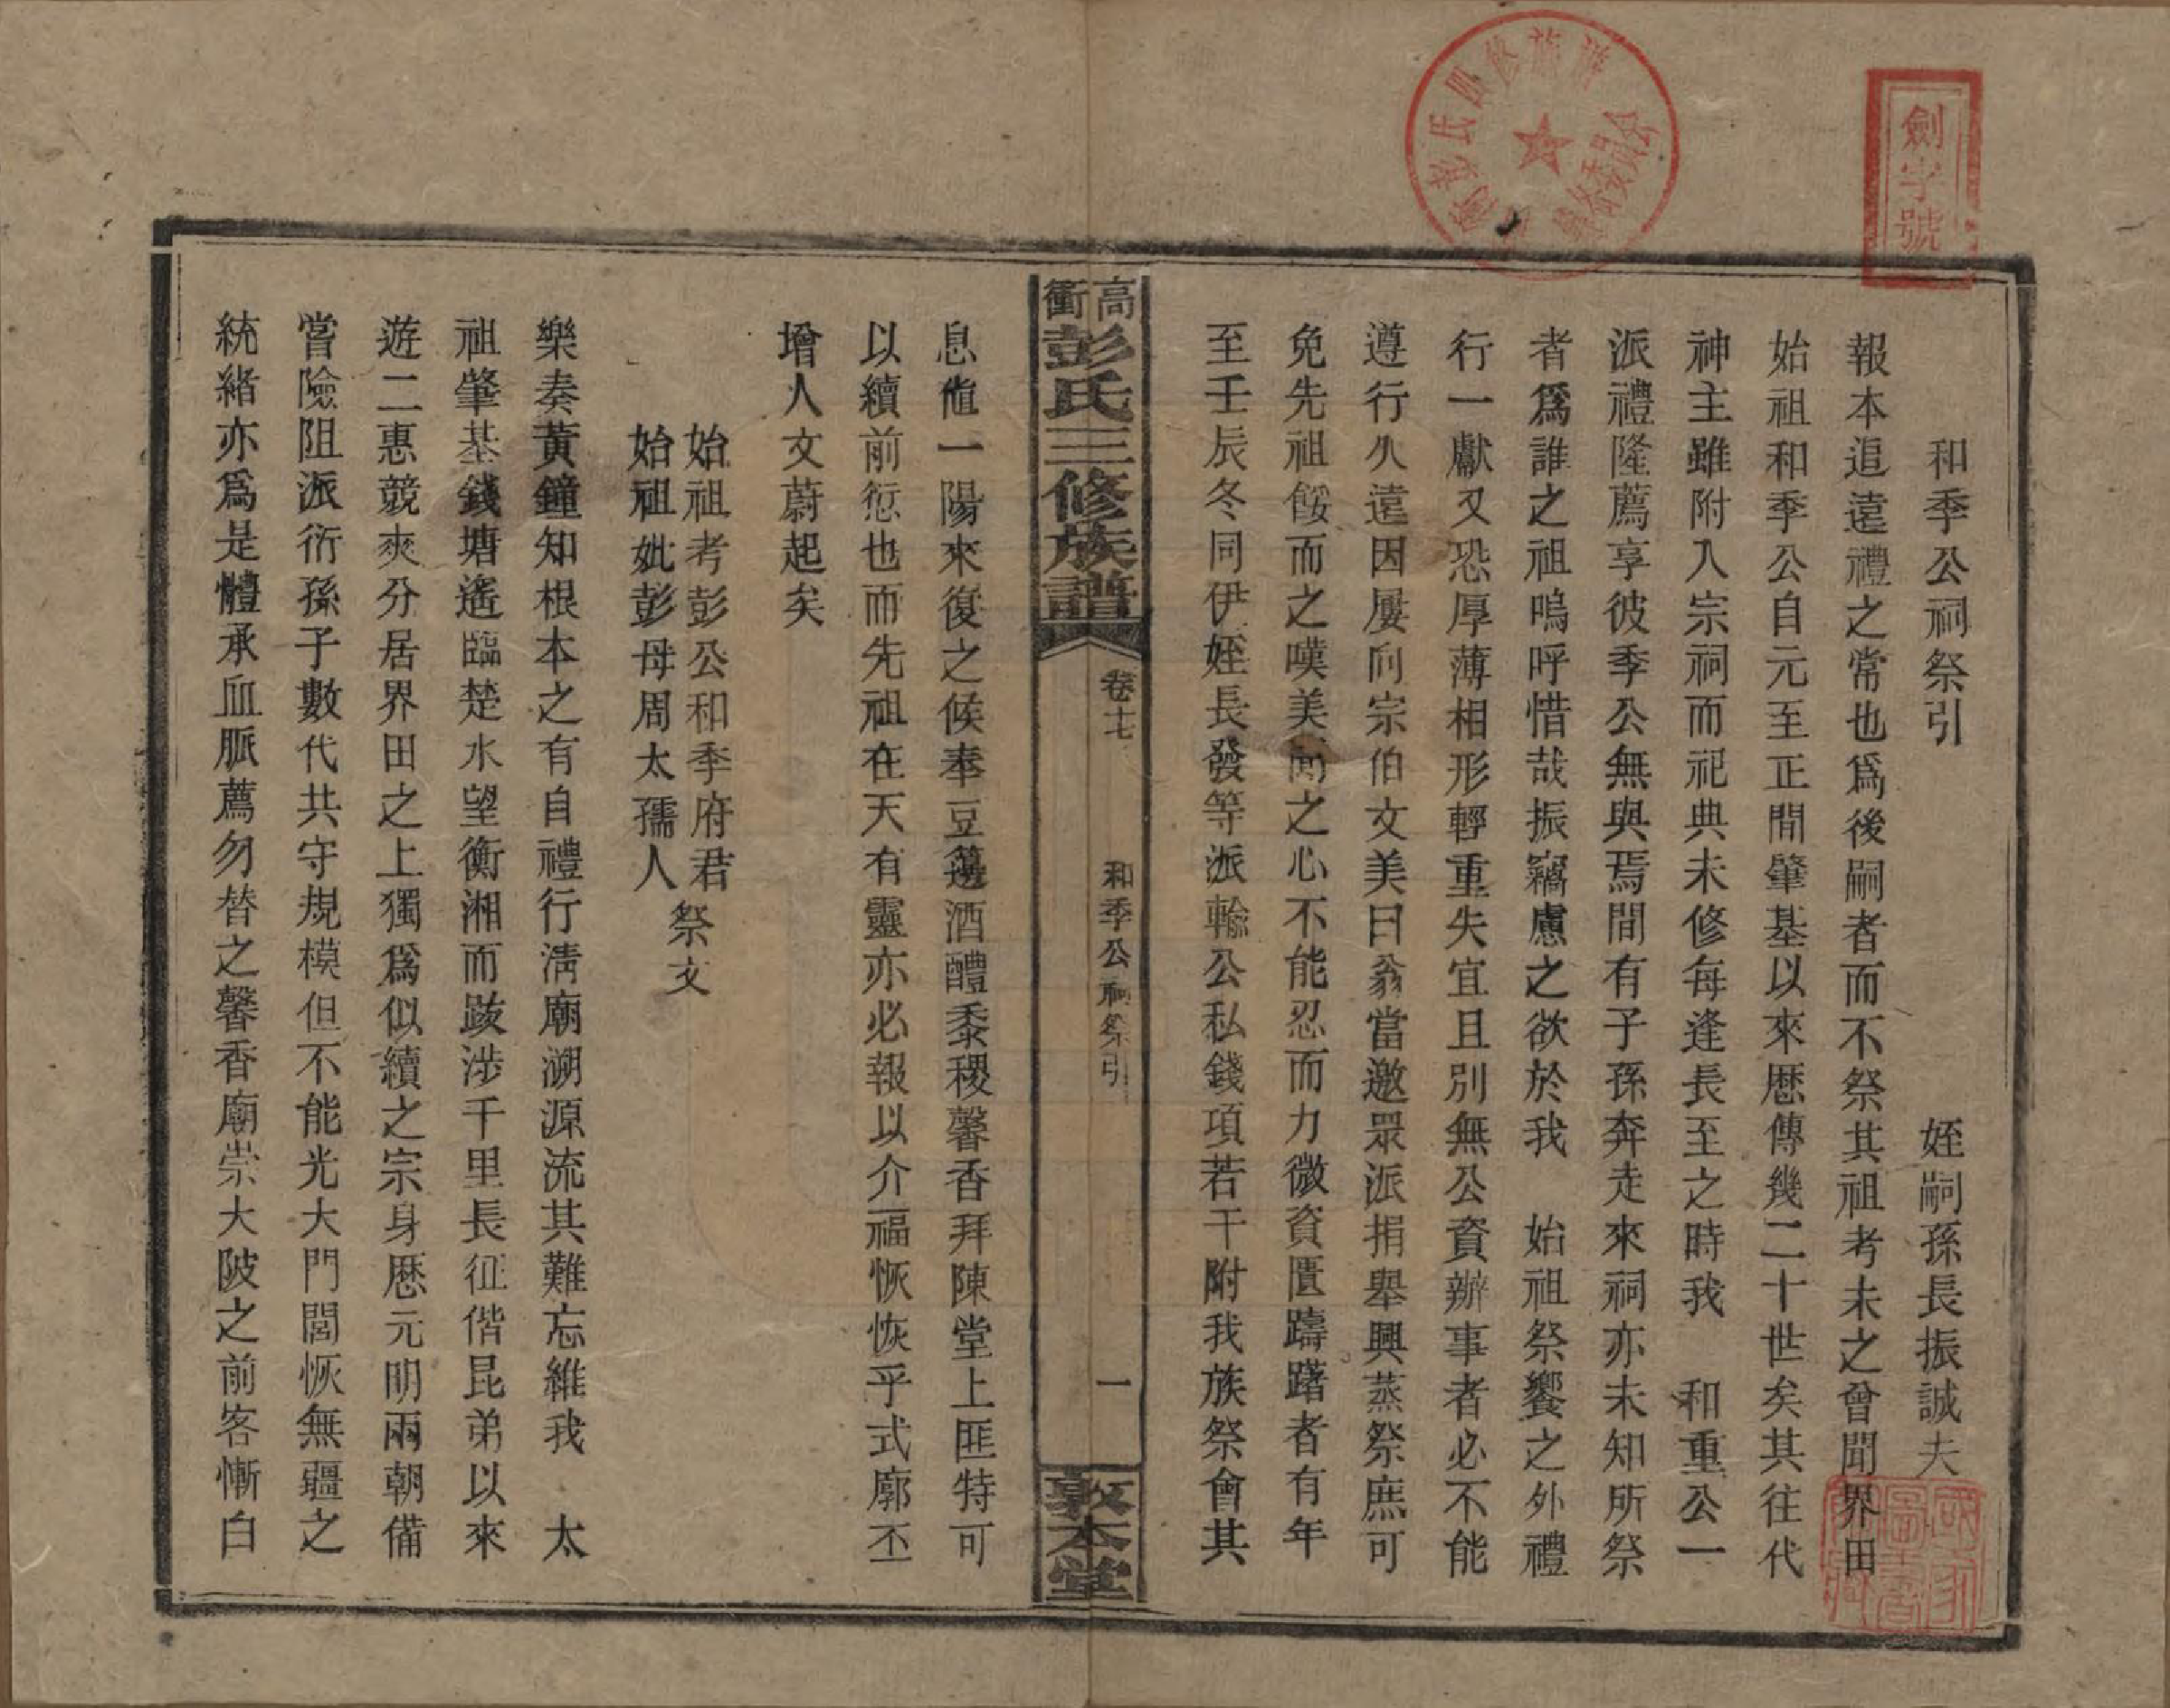 劍字號
和季公祠祭引　姪嗣孫長振誠夫
報本追遠禮之常也爲後嗣者而不祭其祖考未之曾聞界田
始祖和季公自元至正間肇基以來歴傳幾二十世矣其往代
神主雖附入宗祠而祀典未修每逢長至之時我　和重公一
派禮隆薦享彼季公無與焉間有子孫奔走來祠亦未知所祭
者爲誰之祖嗚呼惜哉振竊慮之欲於我　始祖祭饗之外禮
行一獻又恐厚薄相形輕重失宜且別無公資辦事者必不能
遵行久遠因屢向宗伯文美曰翁當邀眾派捐舉興蒸祭庶可
免先祖餒而之嘆美聞之心不能忍而力微資匱躊躇者有年
至壬辰冬同伊姪長發等派輸公私錢項若干附我族祭會其
高衝彭氏三修族譜
卷十七
和季公祠祭引
一
敦本堂
息值一陽來復之候奉豆籩酒醴黍稷馨香拜陳堂上匪特可
以續前愆也而先祖在天有靈亦必報以介福恢恢乎式廓丕
增人文蔚起矣
始祖考彭公和季府君
始祖妣彭母周太孺人
祭文
樂奏黃鐘知根本之有自禮行淸廟溯源流其難忘維我　太
祖肇基錢塘遙臨楚水望衡湘而跋涉千里長征偕昆弟以來
遊二惠競爽分居界田之上獨爲似續之宗身歴元明兩朝備
嘗險阻派衍孫子數代共守規模但不能光大門閭恢無疆之
統緒亦爲是體承血脈薦勿替之馨香廟崇大陂之前客慚白